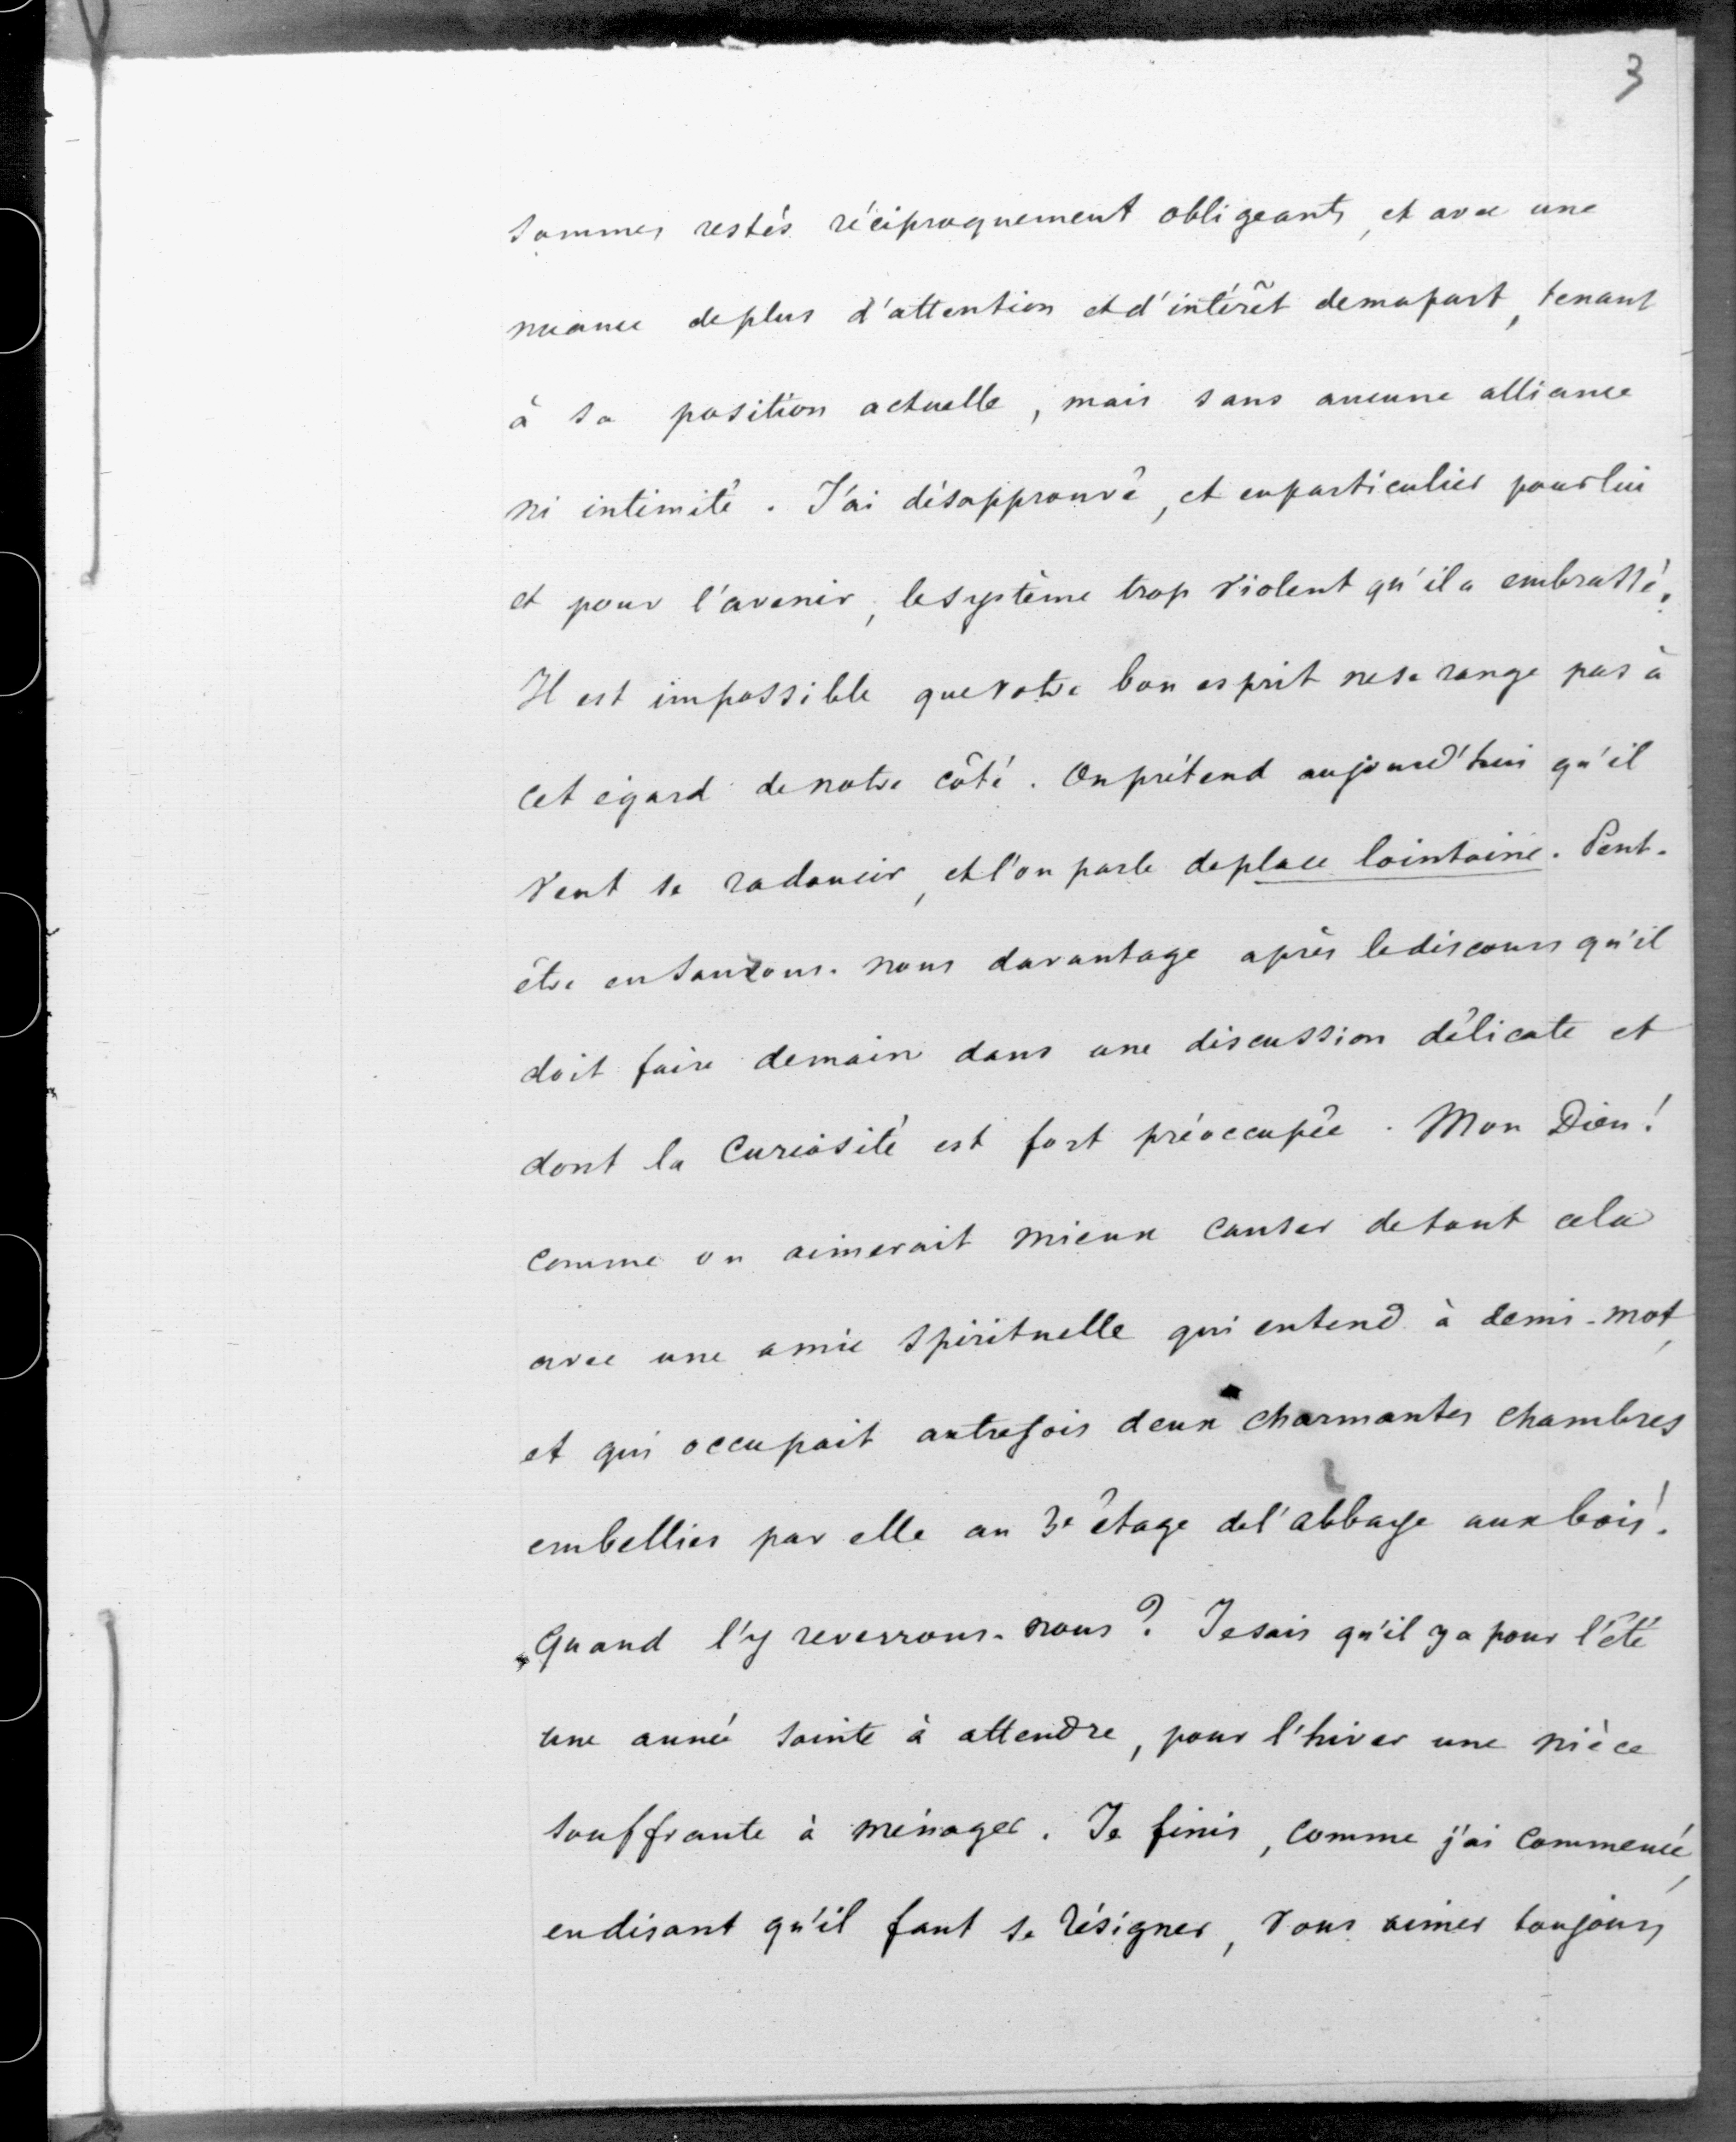 3
sommes restés réciproquement obligeants, et avec une
nuance de plus d'attention et d'intérêt de ma part, tenant
à sa position actuelle, mais sans aucune alliance
ni intimité. J'ai désapprouvé, et en particulier pour lui
et pour l'avenir, le système trop violent qu'il a embrassé.
Il est impossible que votre bon esprit ne se range pas à
cet égard de notre côté. On prétend aujourd'hui qu'il
veut se radoucir, et l'on parle de place lointaine. Peut-
être en saurons-nous davantage après le discours qu'il
doit faire demain dans une discussion délicate et
dont la curiosité est fort préoccupée. Mon Dieu!
comme on aimerait mieux causer de tout cela
avec une amie spirituelle qui entend à demi-mot,
et qui occupait autrefois deux charmantes chambres
embellies par elle au 3e étage de l'abbaye aux bois!
Quand l'y reverrons-nous? Je sais qu'il y a pour l'été
une année sainte à attendre, pour l'hiver une nièce
souffrante à ménager. Je finis, comme j'ai commencé,
en disant qu'il faut se résigner, vous aimer toujours